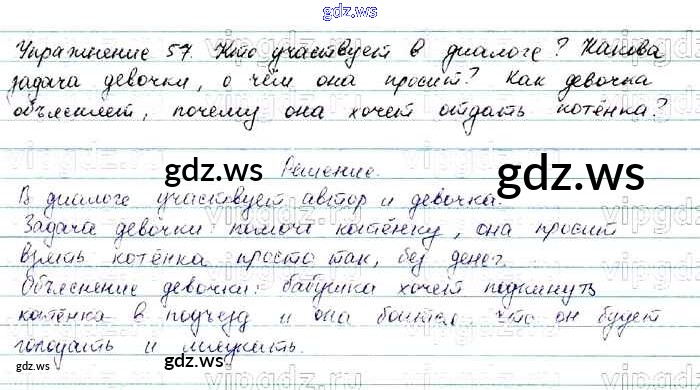 gdz.ws
Упражнение 57. Кто участвует в диалоге? Какова
задача девочки, о чём она просит? Как девочка
объясняет, почему она хочет отдать котёнка?
gdz.ws
gdz.ws
gdz.ws
Решение.
В диалоге участвует автор и девочка.
Задача девочки помочь котёнку, она просит
взять котёнка просто так, без денег.
Объяснение девочки: бабушка хочет подкинуть
котёнка в подъезд и она боится что он будет
голодать и мяукать.
gdz.ws
gdz.ws
gdz.ws